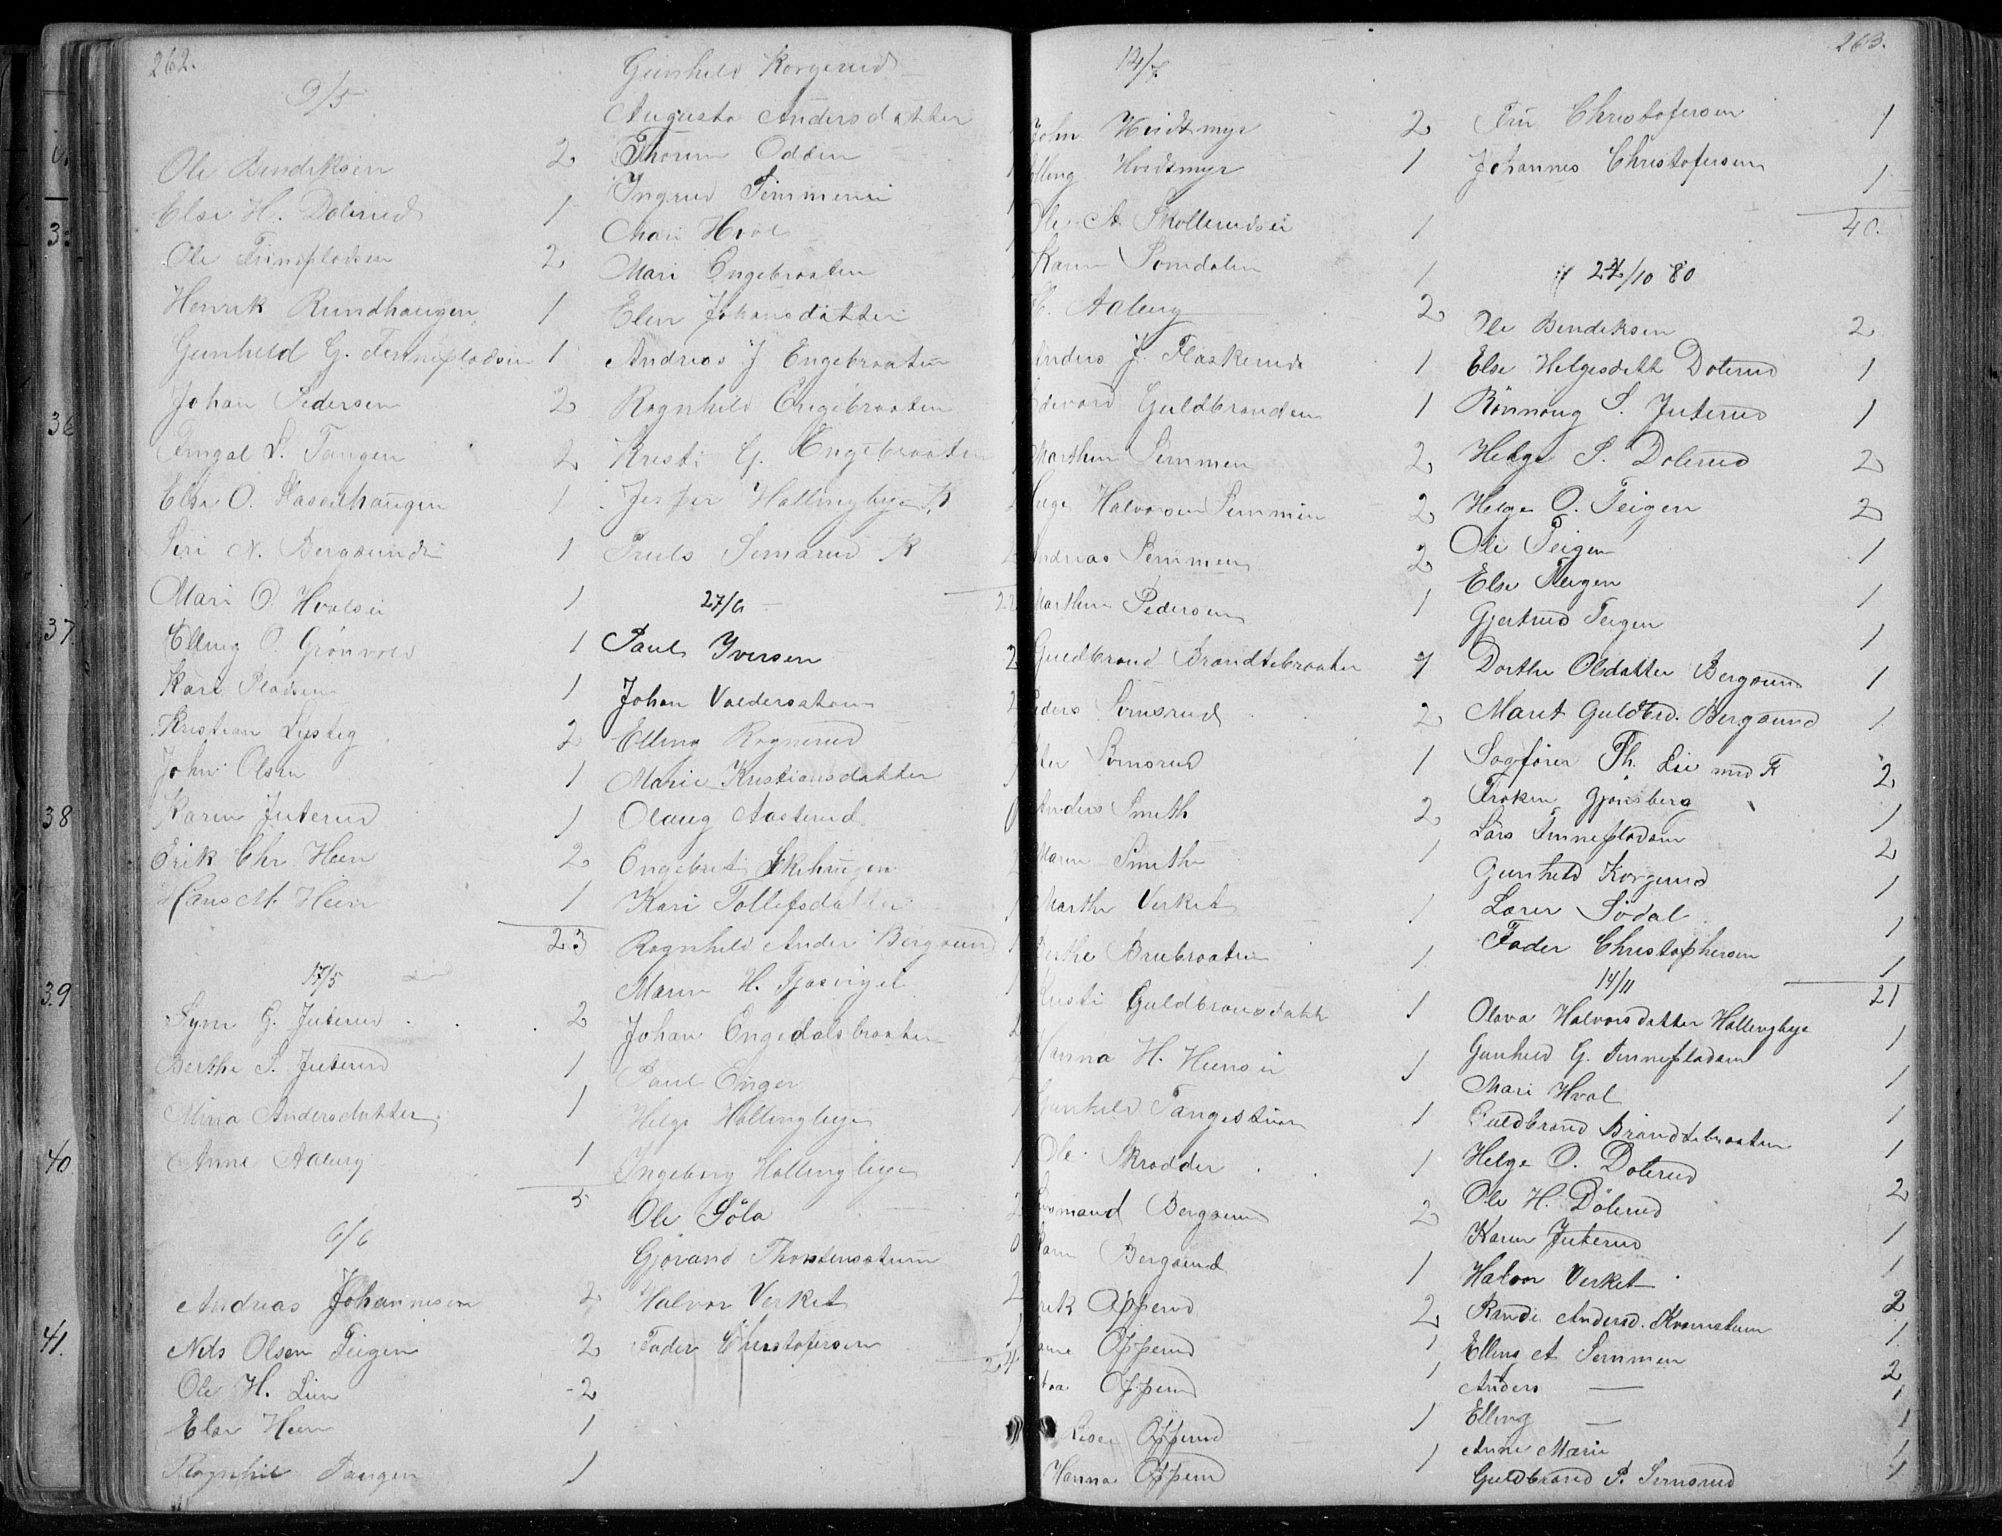 262.
9/5
Ole Bendiksen 2
Else H. Dolerud 1
Ole Finneplodsen 2
Henrik Rundhaugen 1
Gunhild G. Finneplodsen 1
Johan Pedersen 2
L. Tangen 2
Else O. 1
Siri N. Bergsund 1
Mari O. Hvalsei 1
Elling O. Grönvold 1
Kari Pladsen 1
Kristian Lystig 2
John Olsen 1
Karen Juterud 1
Erik Chr. Heen 2
Hans M. Heen 1
23
17/5
Syver G. Juterud 2
Berthe S. Juterud 1
Mina Andersdatter 1
Anne Aaberg 1
5
6/6
Andreas Johannesen 2
Nels Olsen Teigen 2
Ole H. Lien 2
Else Heen 1
Ragnhil Tangen 1
Gunhild Korgerud
Augusta Andersdatter
Thorine Odden
Ingrid Semmensei
Mari Hval
Mari Engebraaten
Elen Johansdatter
Andreas J Engebraaten
Ragnhild Engebraaten
Kristi G. Engebraaten
Jesper Hallingbye K
Truls Semsrud K
22
27/6
Paul Iversen 2
Johan Valdersstuen 2
Elling Rognerud
Marie Kristiansdatter 1
Olaug Aasterud
Engebret Skihaugen
Kari Tollefsdatter 1
Ragnhild Anders Bergsund 1
Maren H. 1
Johan Engedalsbraaten
Paul Enger
Helge Hallingbye 1
Ingeborg Hallingbye 1
Ole Söla 2
Gjörand Thorstensstuen 0
Halvor Verket 2
Fader Christofersen 1
24
263.
14/7
John Hvidtmyr 2
Elling Hvidtmyr 1
Ole A Skollerudsei 1
Karen Somdalen 1
Aaberg 2
Anders J. Flaskerud 1
Edevard Guldbrandsen 1
Marthin Semmen 2
Helge Halvorsen Semmen 2
Andreas Semmen 2
Marthin Pedersen 1
Guldbrand Brandtebraaten 1
Peder Semsrud 2
Semsrud 1
Anders Smith 2
Maren Smith 1
Marthe Verket 1
Berthe Brubraaten 1
Kristi Guldbrandsdatt 1
Hanna H. Heensei 1
Gunhild Tangestuen 1
Ole Skrædder 1
Gudmund Bergsund 2
Karen Bergsund 1
Erik Opperud 2
Anne Opperud 1
Opperud 1
Lise Opperud 1
Hanna Opperud 1
Fru Christofersen 1
Johannes Christofersen 1
40.
24/10 80
Ole Bendiksen 2
Else Helgesdatt Dolerud 1
Rönnaug S. Juterud 1
Helge S. Dolerud 2
Helge O. Teigen 2
Ole Teigen 1
Else Teigen 1
Gjertrud Teigen 1
Dorthe Olsdatter Bergsund 1
Marit Guldbrd. Bergsund 1
Sagförer Th. Lie med F 2
Fröken Gjønsberg 1
Lars Finneplodsen 2
Gunhild Korgerud 1
Lærer Södal 1
Fader Christophersen 1
21
14/11
Olava Halvorsdatter Hallingbye 1
Gunhild G. Finneplodsen 1
Mari Hval 1
Guldbrand Brandtebraaten 1
Helge O. Dolerud 2
Ole H. Dölerud 1
Karen Juterud 1
Halvor Verket 2
Randi Andersd. Kvernstuen 1
Elling A Semmen 2
Anders — 1
Elling — 1
Anne Marie 1
Guldbrand P. Semsrud 1
36
37.
38
39.
40
41.